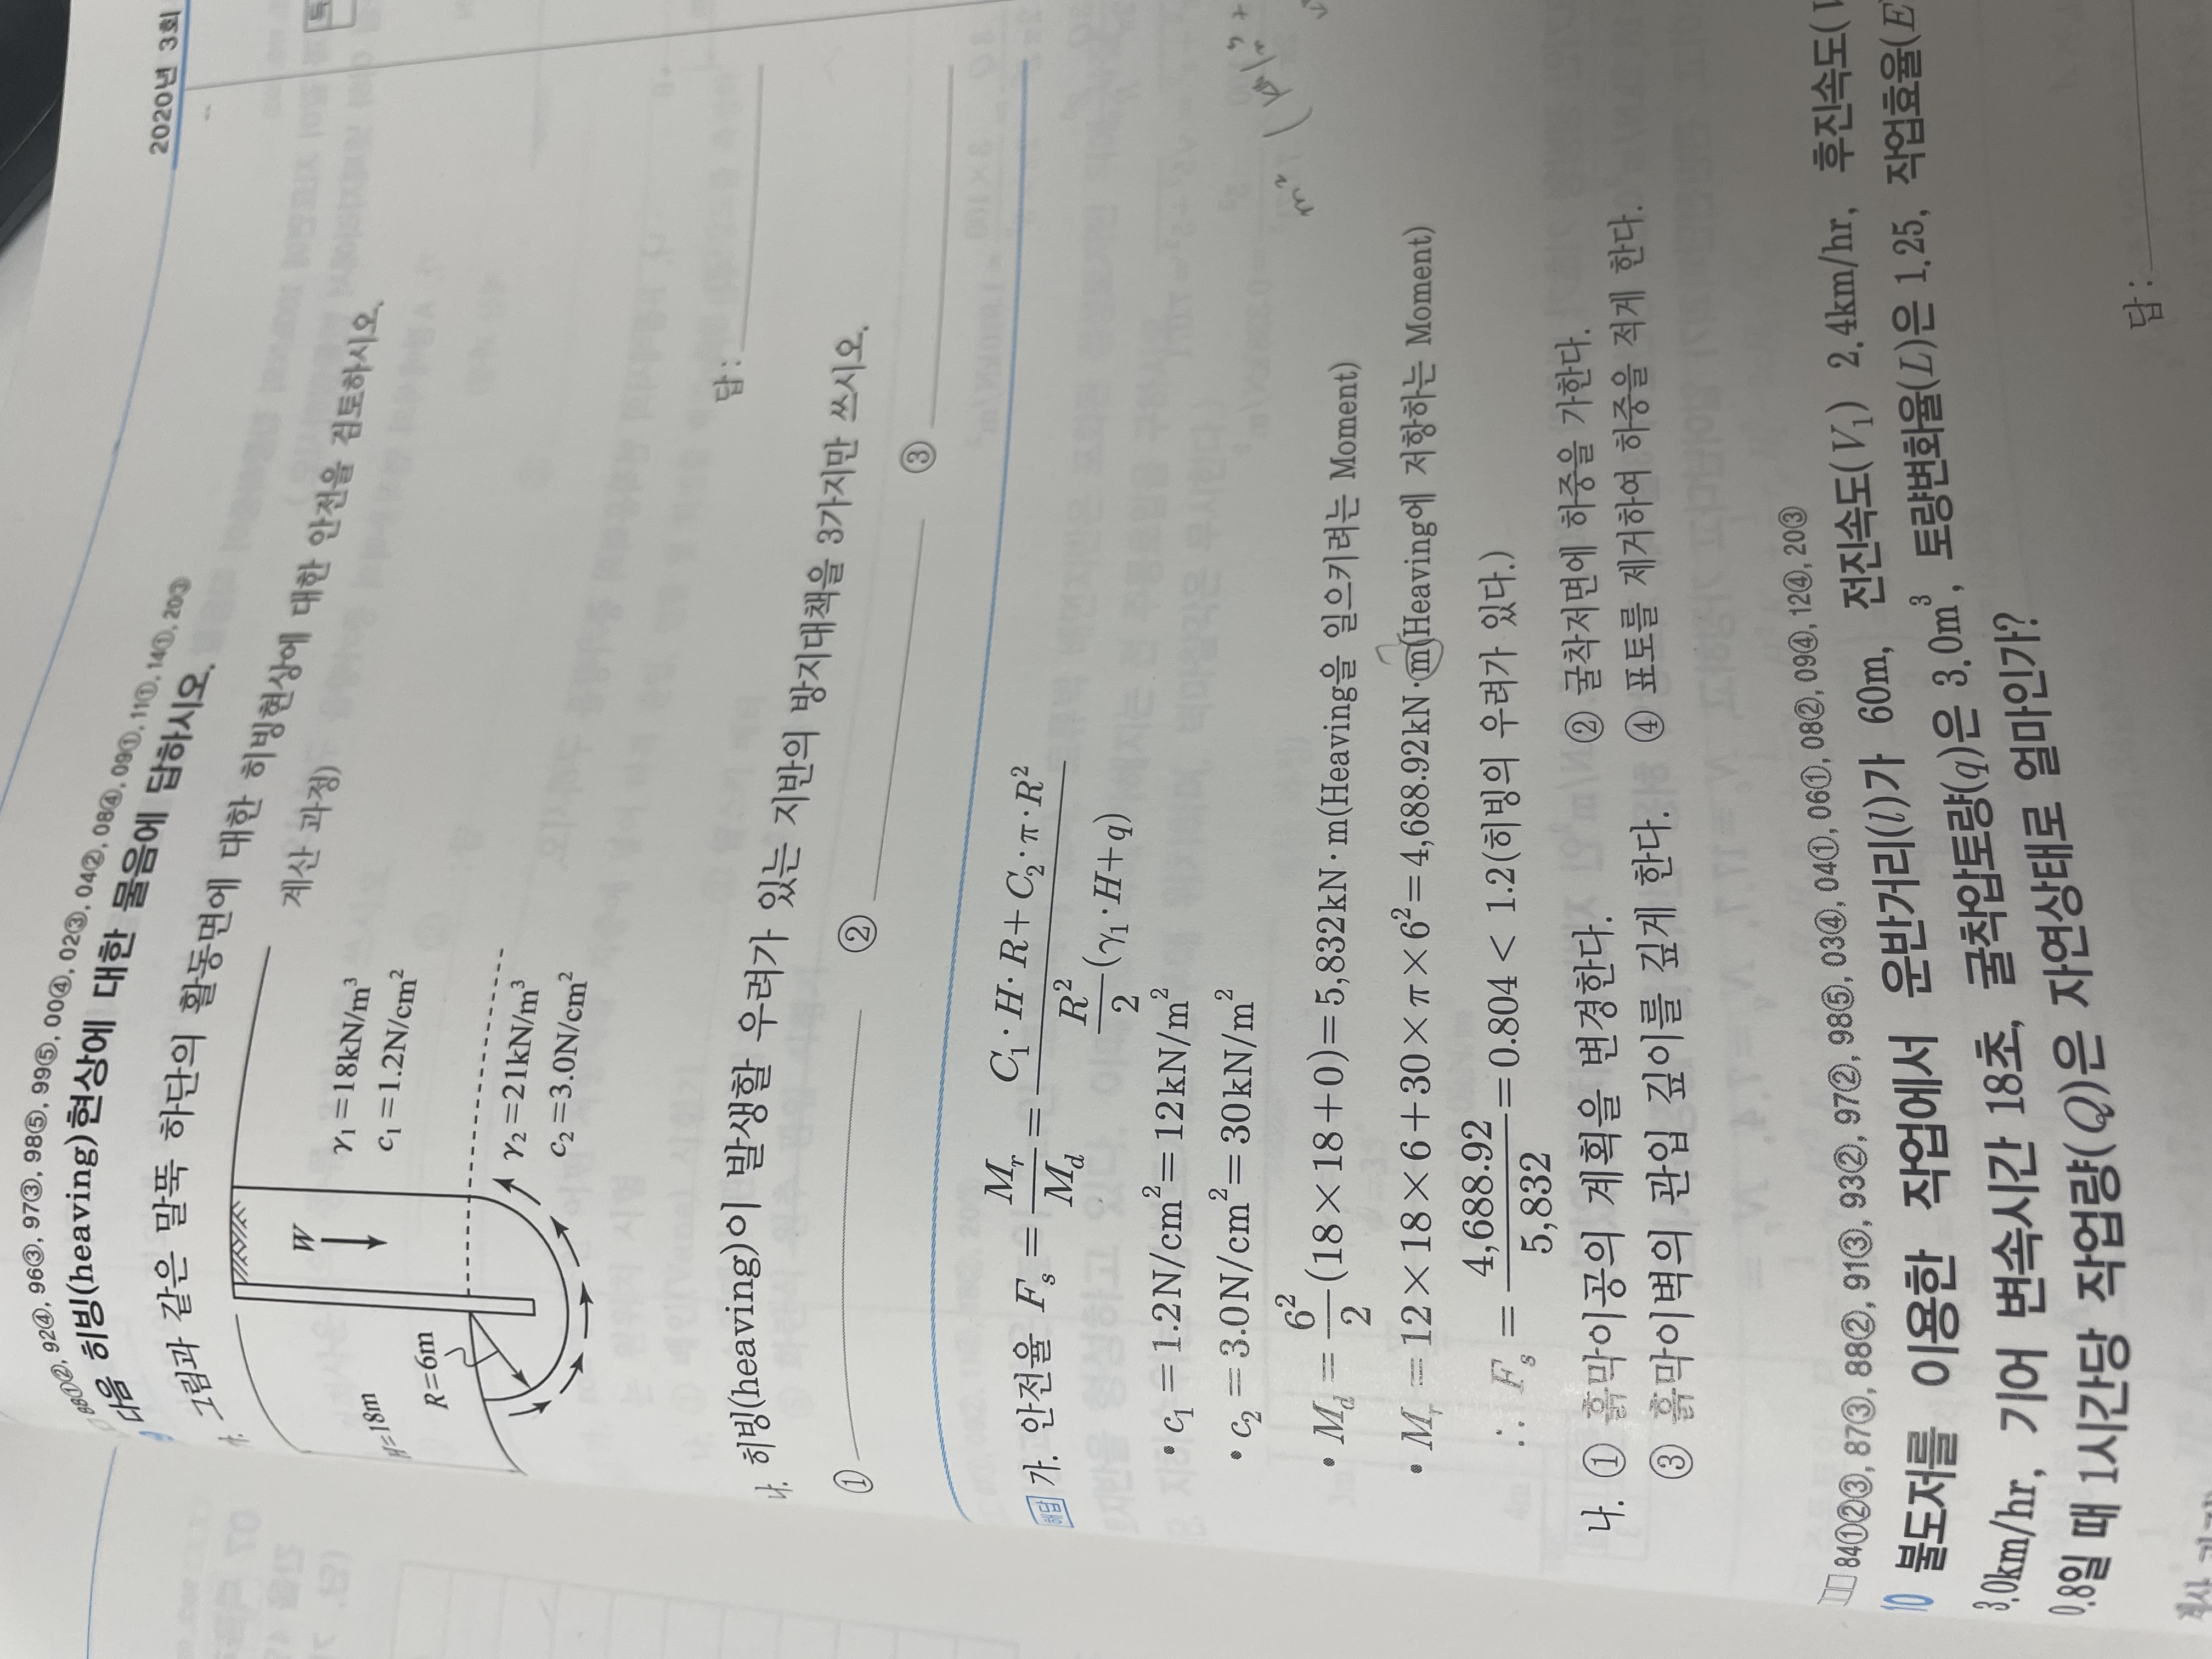 2020년 3회
88①②, 92④, 96③, 97③, 98⑤, 99⑤, 00④, 02③, 04②, 08④, 09①, 11①, 14①, 20③
다음 히빙(heaving)현상에 대한 물음에 답하시오.
가. 그림과 같은 말뚝 하단의 활동면에 대한 히빙현상에 대한 안전을 검토하시오.
계산 과정)
W
γ₁=18kN/m³
c₁=1.2N/cm²
H=18m
R=6m
γ₂=21kN/m³
c₂=3.0N/cm²
답 :
나. 히빙(heaving)이 발생할 우려가 있는 지반의 방지대책을 3가지만 쓰시오.
① ② ③
해답 가. 안전율 F_s = M_r/M_d = (C₁·H·R+C₂·π·R²)/(R²/2(γ₁·H+q))
• c₁=1.2N/cm²=12kN/m²
• c₂=3.0N/cm²=30kN/m²
• M_d = 6²/2(18×18+0)=5,832kN·m(Heaving을 일으키려는 Moment)
• M_r =12×18×6+30×π×6²=4,688.92kN·m(Heaving에 저항하는 Moment)
∴ F_s = 4,688.92/5,832 =0.804 < 1.2(히빙의 우려가 있다.)
나. ① 흙막이공의 계획을 변경한다. ② 굴착저면에 하중을 가한다.
③ 흙막이벽의 관입 깊이를 깊게 한다. ④ 표토를 제거하여 하중을 적게 한다.
84①②③, 87③, 88②, 91③, 93②, 97②, 98⑤, 03④, 04①, 06①, 08②, 09④, 12④, 20③
10 불도저를 이용한 작업에서 운반거리(l)가 60m, 전진속도(V₁) 2.4km/hr, 후진속도(V
3.0km/hr, 기어 변속시간 18초, 굴착압토량(q)은 3.0m³, 토량변화율(L)은 1.25, 작업효율(E
0.8일 때 1시간당 작업량(Q)은 자연상태로 얼마인가?
답 :